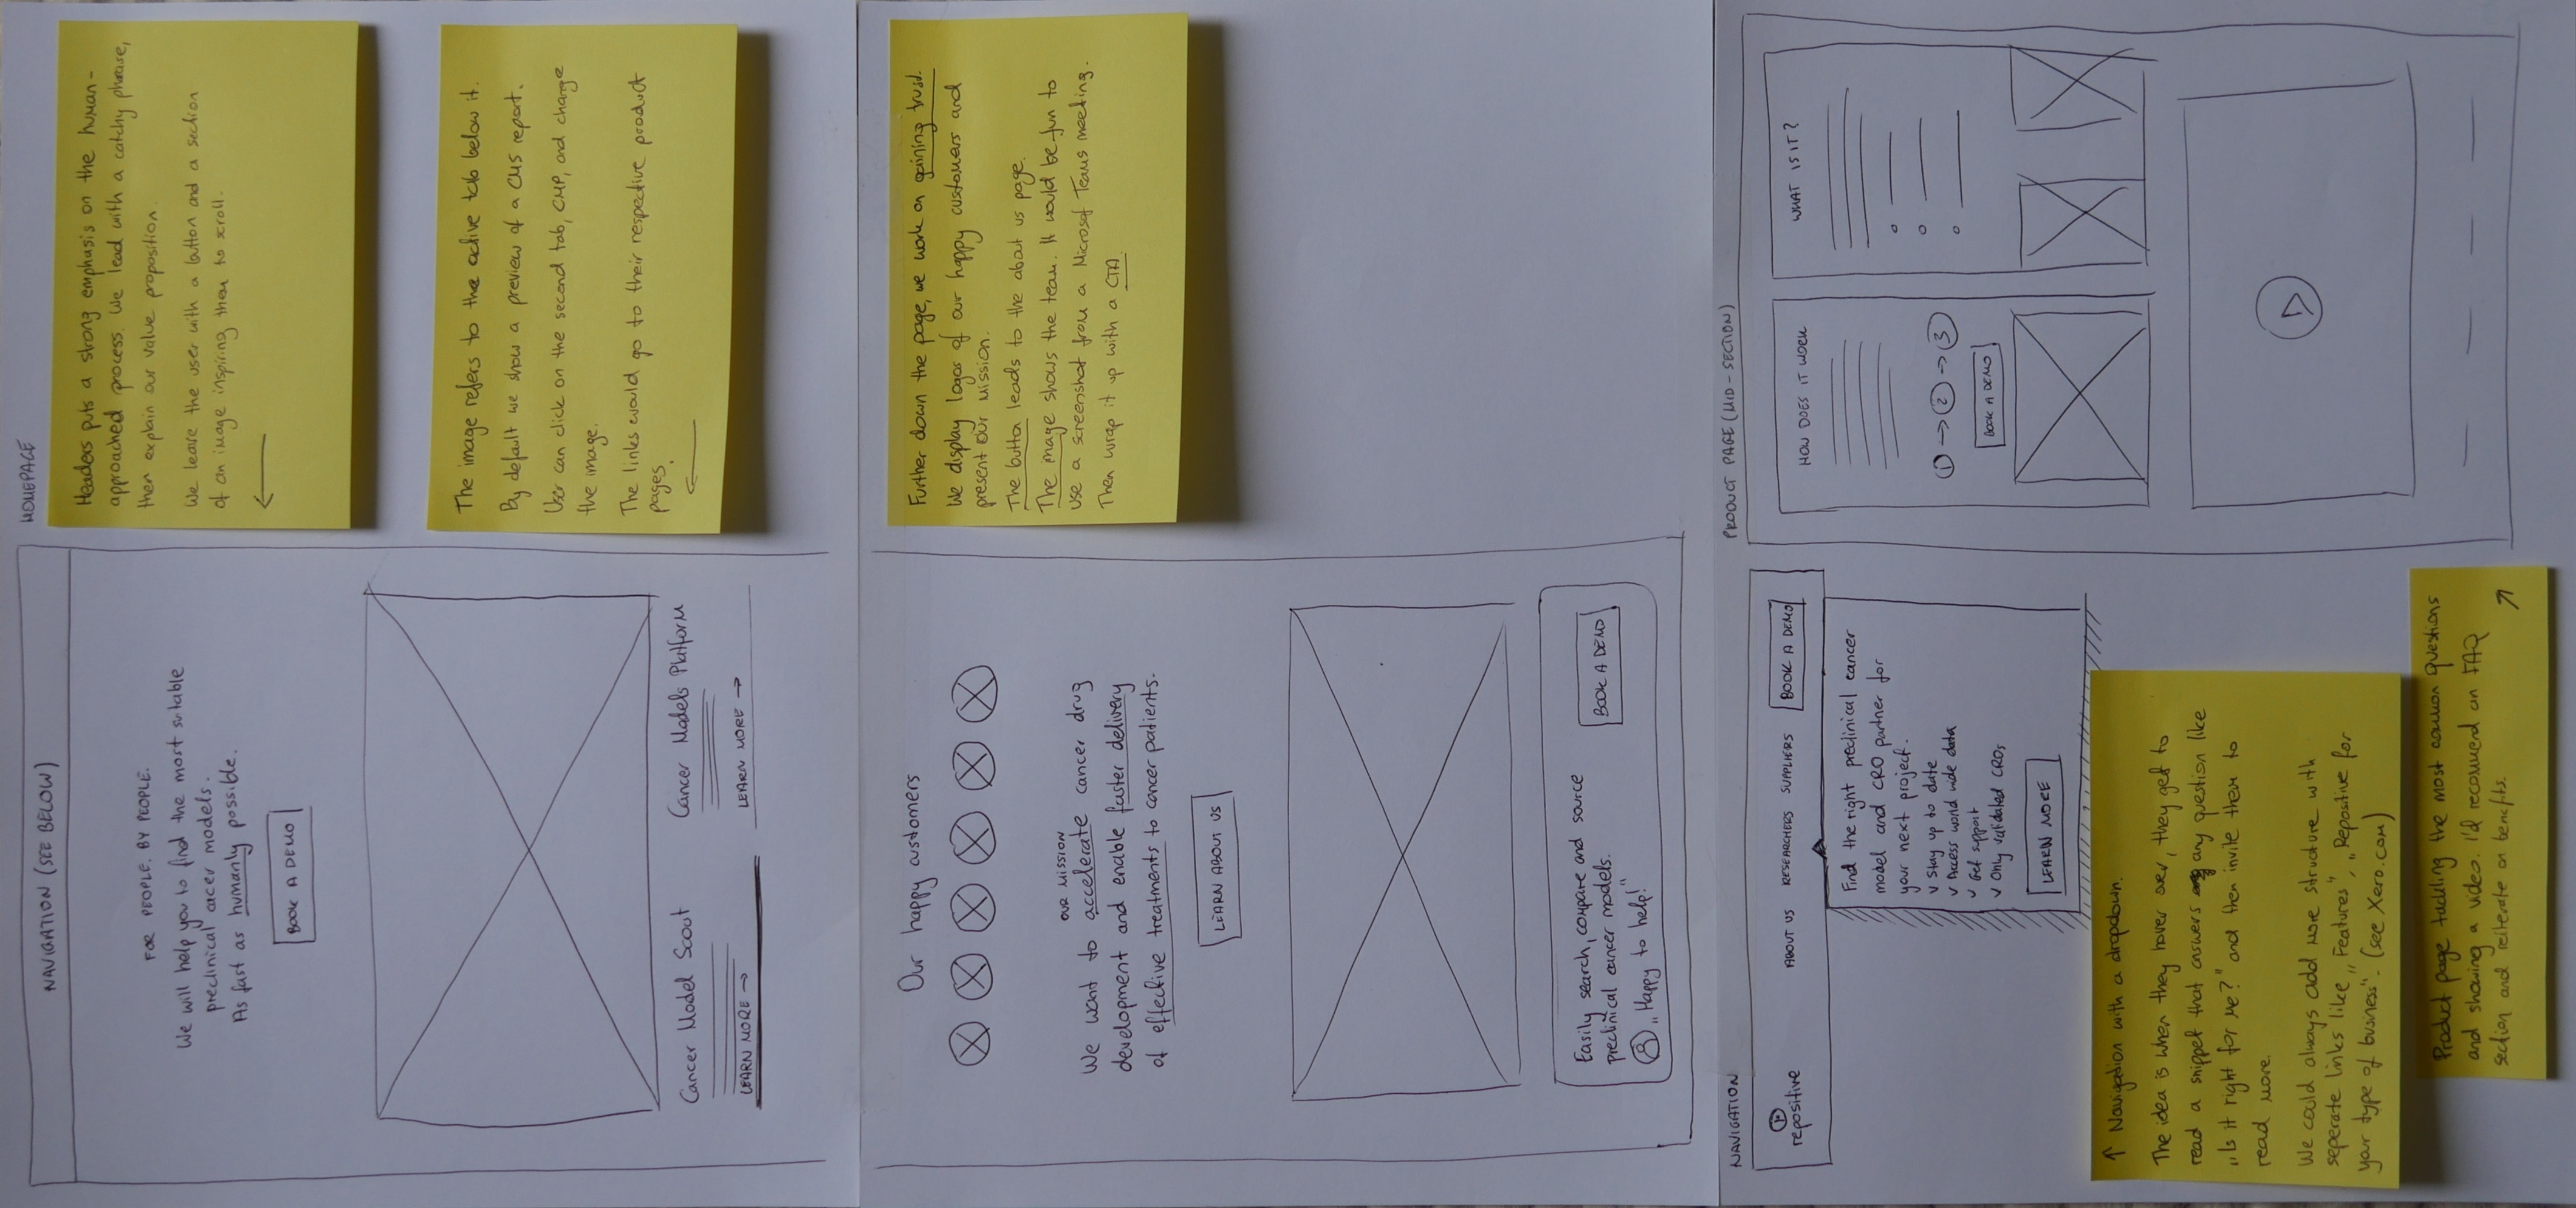 NAVIGATION (SEE BELOW)
FOR PEOPLE. BY PEOPLE.
We will help you to find the most suitable
preclinical cacer models.
As fast as humanly possible.
BOOK A DEMO
Cancer Model Scout
LEARN MORE →
Cancer Models Platform
LEARN MORE →
HOMEPAGE
Headers puts a strong emphasis on the human-
approached process. We lead with a catchy phrase,
then explain our value proposition.
We leave the user with a button and a section
of an image inspiring them to scroll.
←
The image refers to the active tab below it.
By default we show a preview of a CMS report.
User can click on the second tab, CMP, and change
the image.
The links would go to their respective product
pages.
←
Our happy customers
OUR MISSION
We want to accelerate cancer drug
development and enable faster delivery
of effective treatments to cancer patients.
LEARN ABOUT US
Easily search, compare and source
preclinical cancer models.
„Happy to help!"
BOOK A DEMO
Further down the page, we work on gaining trust.
We display logos of our happy customers and
present our mission.
The button leads to the about us page.
The image shows the team. It would be fun to
use a screenshot from a Microsof Teams meeting.
Then wrap it up with a CTA.
NAVIGATION
repositive
ABOUT US RESEARCHERS SUPPLIERS BOOK A DEMO
Find the right preclinical cancer
model and CRO partner for
your next project.
✓ Stay up to date
✓ Access world wide data
✓ Get support
✓ Only validated CROs
LEARN MORE
↑ Navigation with a dropdown.
The idea is when they hover over, they get to
read a snippet that answers any question like
„Is it right for me?" and then invite them to
read more.
We could always add more structure with
seperate links like „Features", „Repositive for
your type of business". (see Xero.com)
Product page tackling the most common questions
and showing a video. I'd recommend an FAQ
section and reiterate on benefits.
↗
PRODUCT PAGE (MID-SECTION)
HOW DOES IT WORK
1 → 2 → 3
BOOK A DEMO
WHAT IS IT?